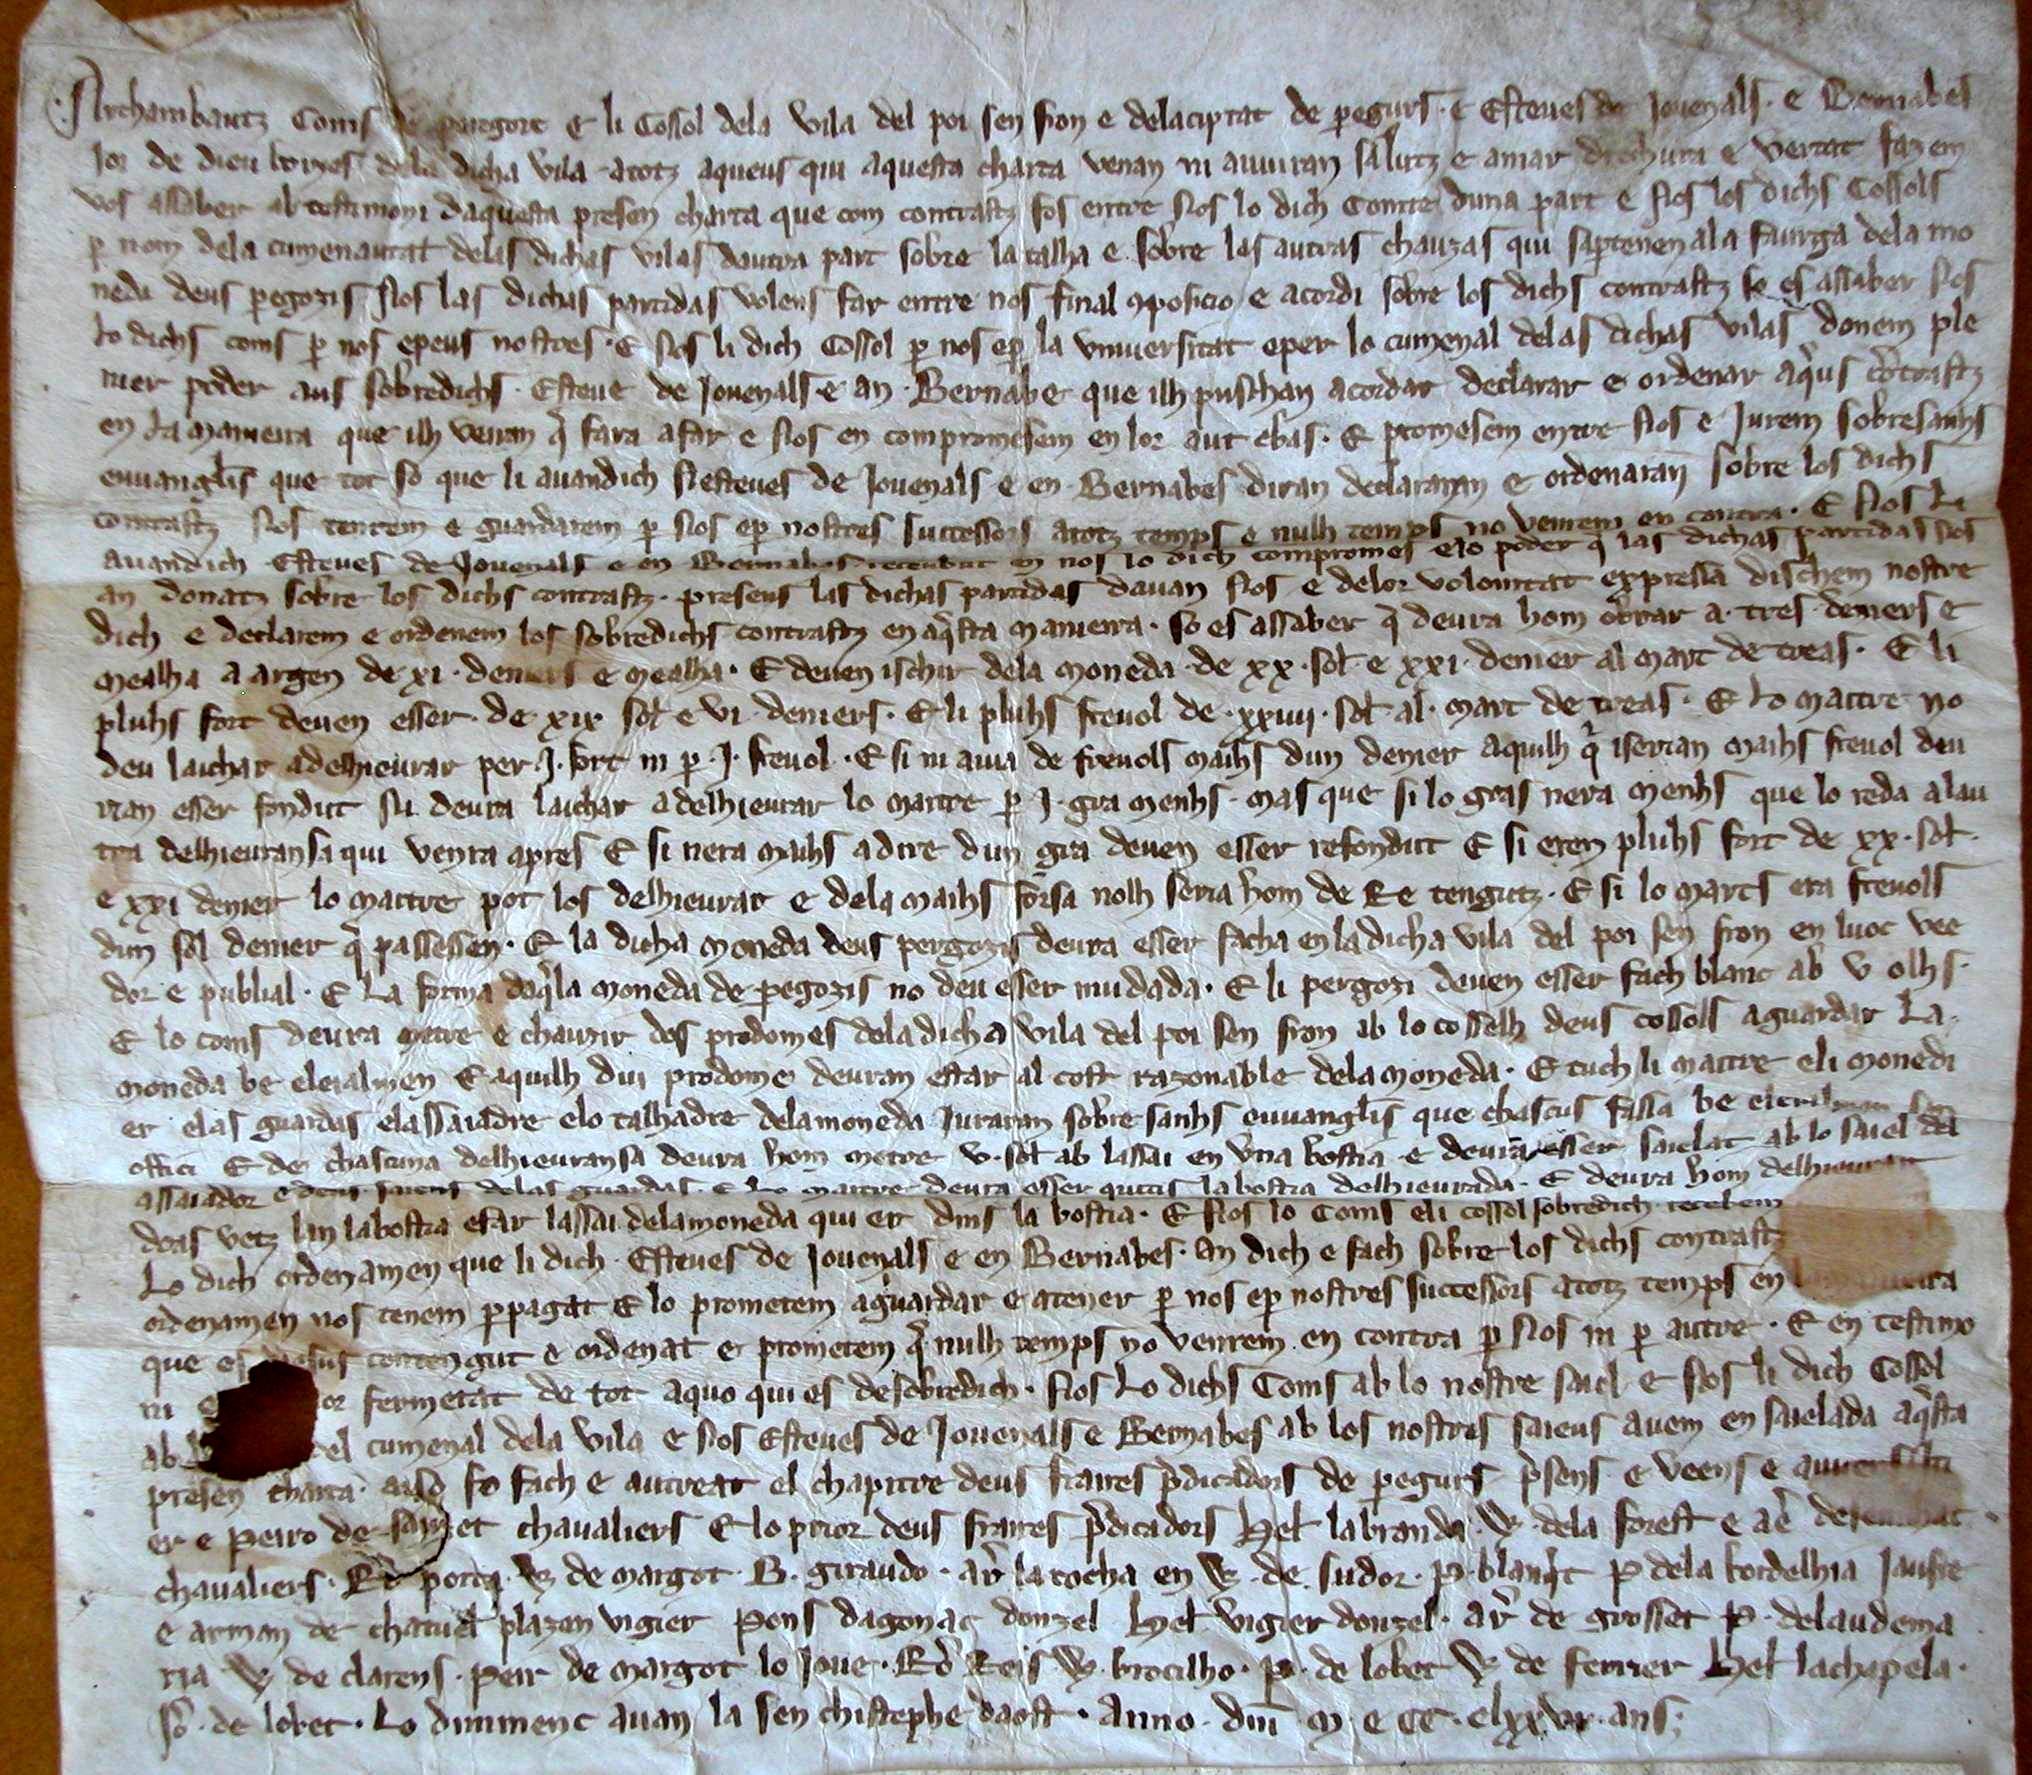 Archambautz Coms de peregorc E li Cossol dela vila del poi sen fron e dela ciptat de pegurs · e Esteves de Jovenals · e Bernabes
lor de dieu borzes dela dicha vila atotz aqueus qui aquesta charta veiran ni auviran salutz e amar drechura e vertat fazem
vos assaber ab testimoni daquesta presen charta que com contrastz fos entre Nos lo dich Comte duna part e Nos los dichs Cossols
p nom dela cumenautat delas dichas vilas dautra part sobre la talha e sobre las autras chauzas qui saptenen ala faurga dela mo
neda deus pegozis Nos las dichas partidas volens far entre nos final oposicio e acordi sobre los dichs contrastz so es assaber Nos
lo dichs coms p nos epeus nostres · E Nos li dich Cossol p nos ep la universitat eper lo cumenal delas dichas vilas donem ple
nier poder aus sobredichs · Esteve de Jovenals e an · Bernabe que ilh puschan acordar declarar e ordenar aqus cotrastz
en la maneira que ilh veiran q fara a far e Nos en compromesem en lor aut ebas · E promesem entre Nos e Jurem sobre sanhs
euvanglis que tot so que li avandich Nesteves de Jovenals e en Bernabes diran declararan e ordenaran sobre los dichs
contrastz Nos tenrem e guardarem p Nos ep nostres successors atotz temps e nulh temps no venrem en contra · E Nos li
avandich Esteves de Jovenals e en Bernabes receubut en nos lo dich compromes elo poder q las dichas partidas nos
an donatz sobre los dichs contrastz · presens las dichas partidas davan Nos e delor voluntat expressa dischem nostre
dich e declarem e ordenem los sobredichs contrastz en aqsta maneira · so es assaber q deura hom obrar a · tres · deniers e
mealha a argen de xi · deniers e mealha · E deven ischir dela moneda de xx · sol e xxi · denier al marc de treas · E li
pluhs fort deven esser · de xix sol e vi · deniers · E li pluhs frevol de · xxiiii · sol al · marc de treas · E lo maitre no
deu laichar a delhieurar per · J · fort ni p · J · frevol · E si ni avia de frevols maihs dun denier aquilh q iserian maihs frevol deu
rian esser fondut Nil deura laichar a delhieurar lo maitre p · J · gra menhs · mas que si lo gras nera menhs que lo reda a lau
tra delhieuransa qui venra apres E si nera maihs a dire dun gra deven esser refondut E si eren pluhs fort de xx · sol
e xxi denier lo maitre pot los delhieurar e dela maihs forsa nolh seria hom de Re tengutz · E si lo marcs era frevols
dun sol denier q passessen · E la dicha moneda deus pergozis deura esser facha en la dicha vila del poi sen fron en luoc vee
dor e publial · E la forma daqla moneda de pegozis no deu esser mudada · E li pergozi deven esser fach blanc ab v olhs ·
E lo coms deura metre e chauzir dos prodomes dela dicha vila del poi sen fron ab lo cosselh deus cossols a guardar la
moneda be eleialmen E aquilh dui prodome deuran estar al cost razonable dela moneda · E tuch li maitre eli monedi
er elas guardas elassaiadre elo talhadre dela moneda Juraran sobre sanhs euvanglis que chascus fassa be
offici E de chascuna delhieuransa deura hom metre v · sol ab lassai en una bostia e deura esser saielat ab lo saiel del
assaiador e deus saieus delas guardas · E lo maitre deura esser quittis la bostia delhieurada · E deura hom
doas vetz lan la bostia efar lassai dela moneda qui er dins la bostia · E Nos lo Coms eli cossol sobredich recebem
Lo dich ordenamen que li dich · Esteves de Jovenals e en Bernabes · an dich e fach sobre los dichs
ordenamen nos tenem ppagat E lo prometem a guardar e atener p nos ep nostres successors atotz temps en
que es contengut e ordenat e prometem q nulh temps no venrem en contra p Nos ni p autre · E en testimo
ni fermetat de tot aquo qui es desobredich · Nos lo dichs Coms ab lo nostre saiel e Nos li dich Cossol
ab del cumenal dela vila e Nos Esteves de Jovenals e Bernabes ab los nostres saieus avem en saielada aqsta
presen charta · aiso fo fach e autreat el chapitre deus fraires pdicadors de pegurs psens e veens e
er e Peiro de chavaliers E lo prior deus fraires pdicadors Hel labranda · W · dela forest e
chavaliers · Ro porta · W de margot · B · giraudo · ar la rocha en W · de sudor · P · blanqt P dela bordelhia Jaufre
e arman de chatuel plazen vigier Pons dagonac donzel Hel vigier donzel · ar de grosset P · delaudema
ria W de clarens · Peir de margot lo Jove · Ro Reis W brocilho · P · de lobet W de ferrier Hel lachapela ·
So · de lobet · Lo dimmenc avan la sen christephe daost · Anno · dni · M · e CC · elxxvi · ans ;